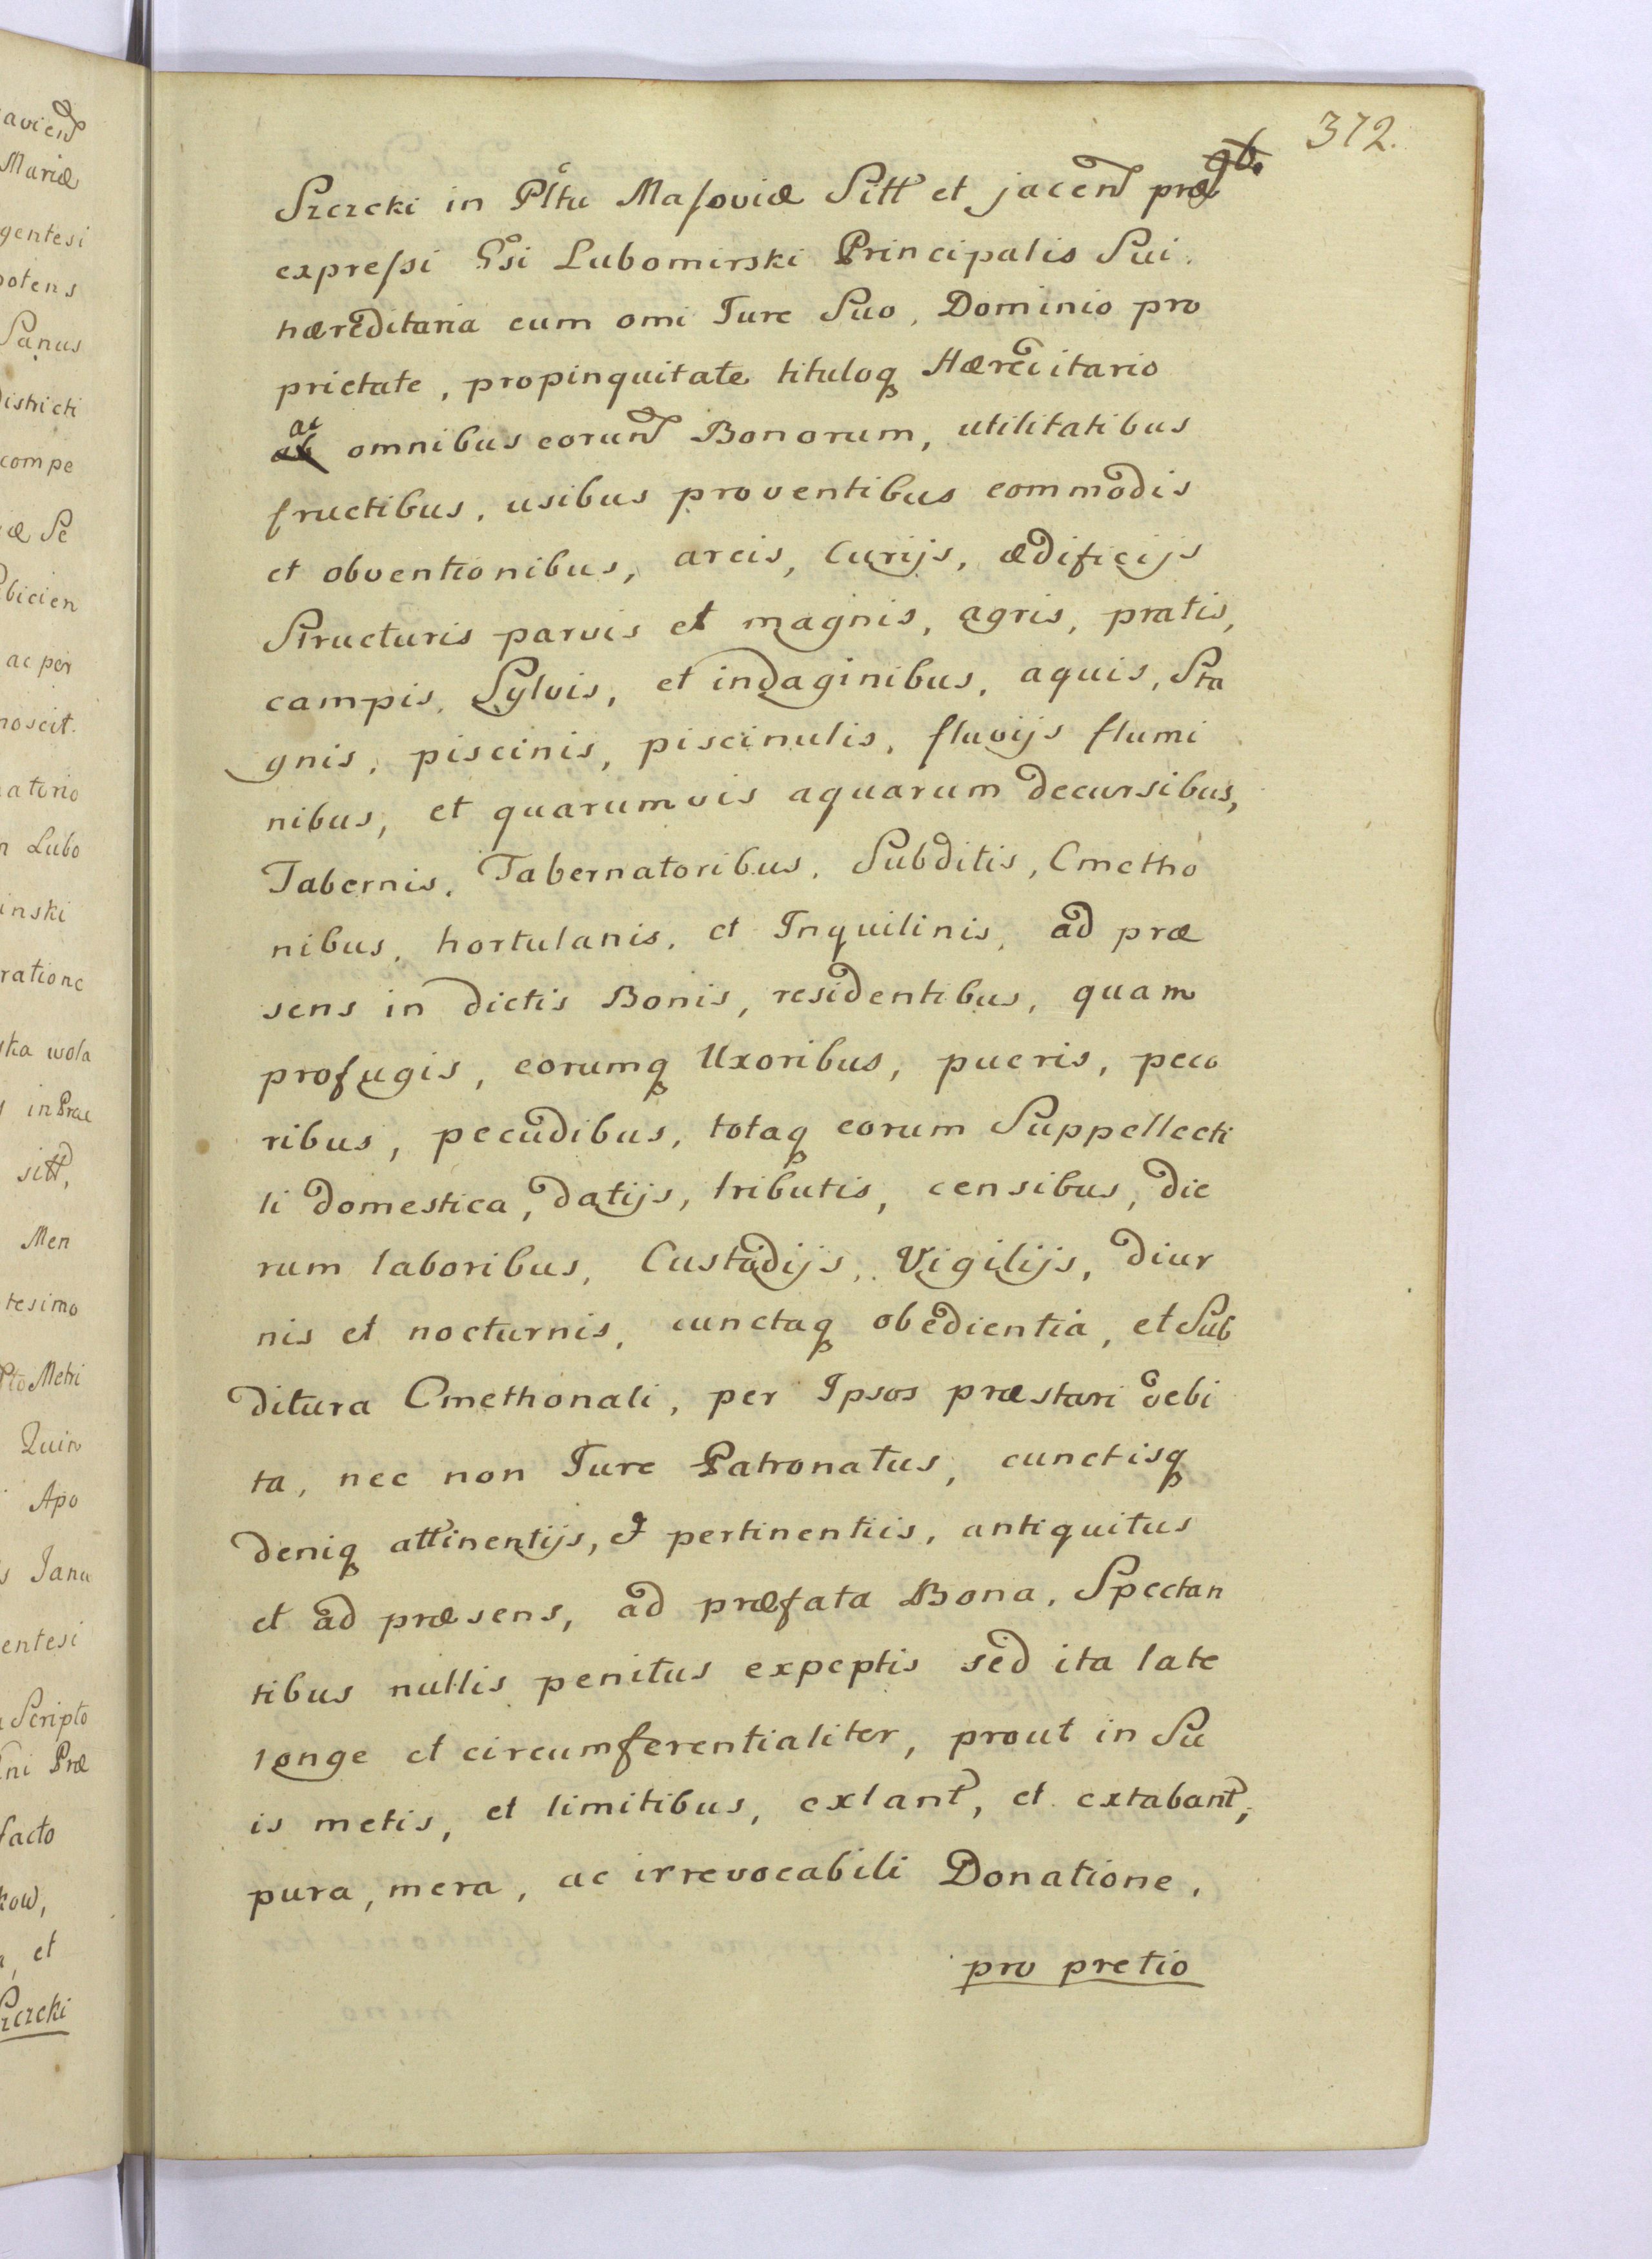 372.
Szczcki in Plttu Masoviæ Sitt et jacen præ
expressi Gsi Lubomirski Principalis Sui.
hæreditaria cum omi Jure Suo, Dominio pro
prietate, propinquitate tituloq Hæreditario
ac omnibus eorund Bonorum, utilitatibus
fructibus, usibus proventibus commodis
et obventionibus, arcis, Curijs, ædificijs
Structuris parvis et magnis, agris, pratis,
campis, Sylvis, et indaginibus, aquis, Sta
gnis, piscinis, piscinulis, fluvijs flumi
nibus, et quarumvis aquarum decursibus,
Tabernis, Tabernatoribus, Subditis, Cmetho
nibus, hortulanis, et Inquilinis, ad præ
sens in dictis Bonis, residentibus, quam
profugis, eorumq Uxoribus, pueris, peco
ribus, pecudibus, totaq eorum Suppellecti
li domestica, datijs, tributis, censibus, die
rum laboribus, Custodijs, Vigilijs, diur
nis et nocturnis, cunctaq obedientia, et Sub
ditura Cmethonali, per Ipsos præstari debi
ta, nec non Jure Patronatus, cunctisq
deniq attinentijs, & pertinentiis, antiquitus
et ad præsens, ad præfata Bona, Spectan
tibus nullis penitus expeptis sed ita late
longe et circumferentialiter, prout in Su
is metis, et limitibus, extant, et extabant,
pura, mera, ac irrevocabili Donatione,
pro pretio